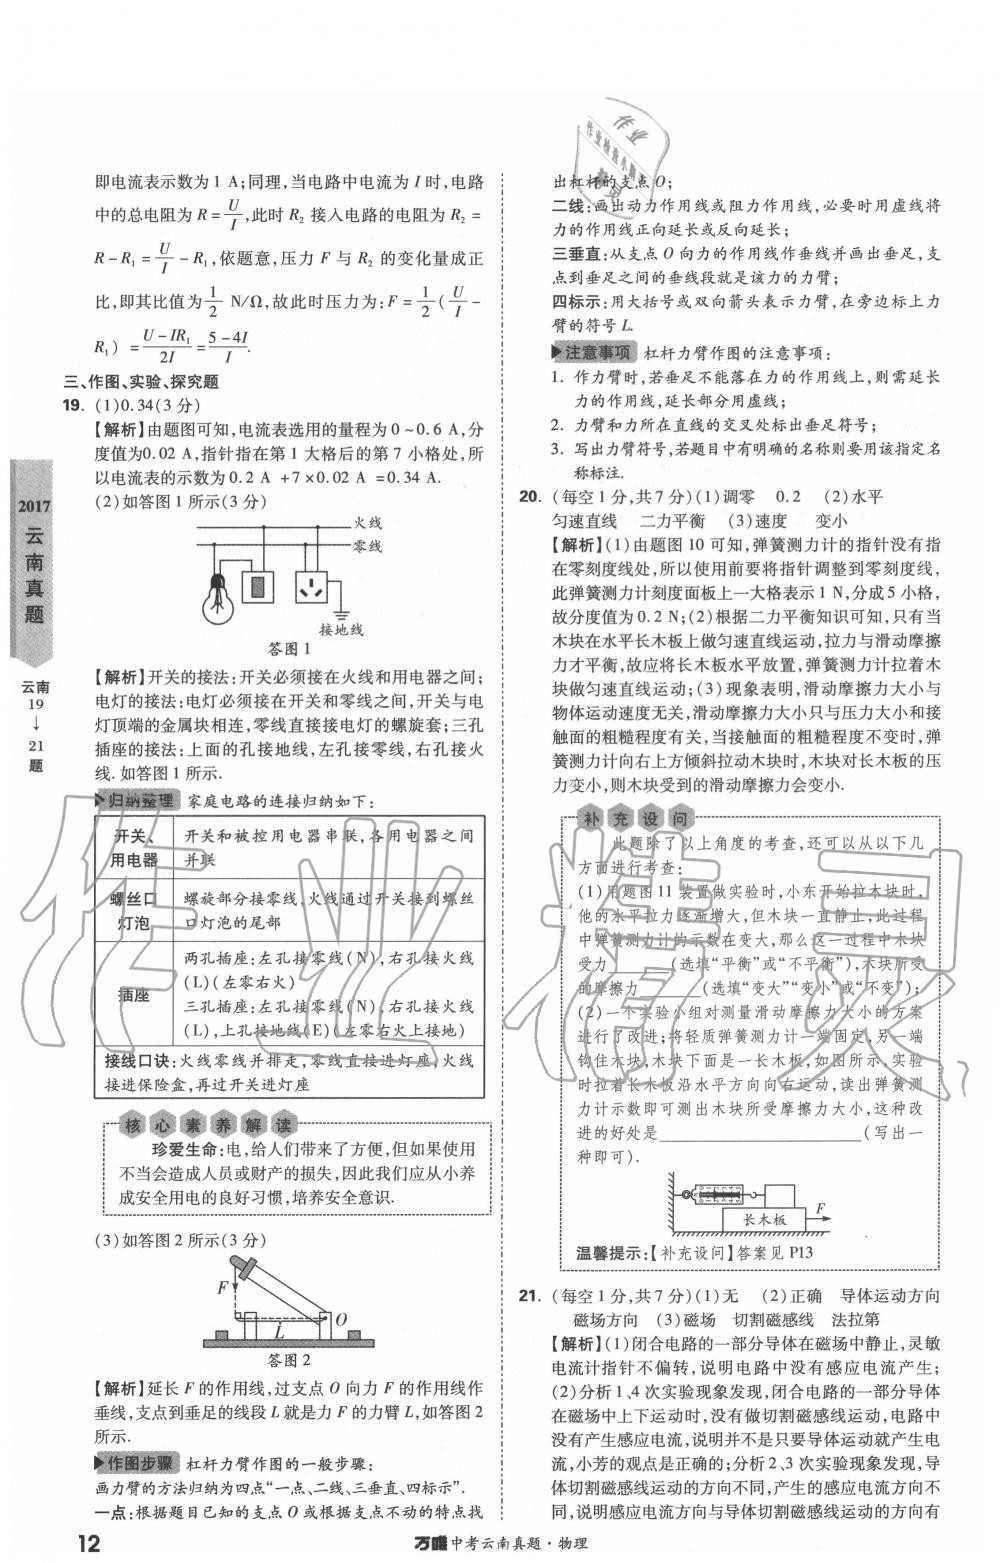 即电流表示数为 1 A;同理,当电路中电流为 I 时,电路
中的总电阻为 R = U/I ,此时 R₂ 接入电路的电阻为 R₂ =
R - R₁ = U/I - R₁,依题意,压力 F 与 R₂ 的变化量成正
比,即其比值为 1/2 N/Ω,故此时压力为:F = 1/2 ( U/I -
R₁) = (U - IR₁)/2I = (5 - 4I)/I.
三、作图、实验、探究题
19. (1)0.34(3 分)
【解析】由题图可知,电流表选用的量程为 0 ~ 0.6 A,分
度值为0.02 A,指针指在第 1 大格后的第 7 小格处,所
以电流表的示数为 0.2 A + 7 × 0.02 A = 0.34 A.
(2)如答图 1 所示(3 分)
火线
零线
接地线
答图 1
【解析】开关的接法:开关必须接在火线和用电器之间;
电灯的接法:电灯必须接在开关和零线之间,开关与电
灯顶端的金属块相连,零线直接接电灯的螺旋套;三孔
插座的接法:上面的孔接地线,左孔接零线,右孔接火
线.如答图 1 所示.
归纳整理 家庭电路的连接归纳如下:
开关、用电器 开关和被控用电器串联,各用电器之间
并联
螺丝口灯泡 螺旋部分接零线,火线通过开关接到螺丝
口灯泡的尾部
插座 两孔插座:左孔接零线(N),右孔接火线
(L)(左零右火)
三孔插座:左孔接零线(N),右孔接火线
(L),上孔接地线(E)(左零右火上接地)
接线口诀:火线零线并排走,零线直接进灯座,火线
接进保险盒,再过开关进灯座
核心素养解读
珍爱生命:电,给人们带来了方便,但如果使用
不当会造成人员或财产的损失,因此我们应从小养
成安全用电的良好习惯,培养安全意识.
(3)如答图 2 所示(3 分)
F
O
L
答图 2
【解析】延长 F 的作用线,过支点 O 向力 F 的作用线作
垂线,支点到垂足的线段 L 就是力 F 的力臂 L,如答图 2
所示.
作图步骤 杠杆力臂作图的一般步骤:
画力臂的方法归纳为四点“一点、二线、三垂直、四标示”.
一点:根据题目已知的支点 O 或根据支点不动的特点找
出杠杆的支点 O;
二线:画出动力作用线或阻力作用线,必要时用虚线将
力的作用线正向延长或反向延长;
三垂直:从支点 O 向力的作用线作垂线并画出垂足,支
点到垂足之间的垂线段就是该力的力臂;
四标示:用大括号或双向箭头表示力臂,在旁边标上力
臂的符号 L.
注意事项 杠杆力臂作图的注意事项:
1. 作力臂时,若垂足不能落在力的作用线上,则需延长
力的作用线,延长部分用虚线;
2. 力臂和力所在直线的交叉处标出垂足符号;
3. 写出力臂符号,若题目中有明确的名称则要用该指定名
称标注.
20. (每空 1 分,共 7 分)(1)调零 0.2 (2)水平
匀速直线 二力平衡 (3)速度 变小
【解析】(1)由题图 10 可知,弹簧测力计的指针没有指
在零刻度线处,所以使用前要将指针调整到零刻度线,
此弹簧测力计刻度面板上一大格表示 1 N,分成 5 小格,
故分度值为 0.2 N;(2)根据二力平衡知识可知,只有当
木块在水平长木板上做匀速直线运动,拉力与滑动摩擦
力才平衡,故应将长木板水平放置,弹簧测力计拉着木
块做匀速直线运动;(3)现象表明,滑动摩擦力大小与
物体运动速度无关,滑动摩擦力大小只与压力大小和接
触面的粗糙程度有关,当接触面的粗糙程度不变时,弹
簧测力计向右上方倾斜拉动木块时,木块对长木板的压
力变小,则木块受到的滑动摩擦力会变小.
补充设问
此题除了以上角度的考查,还可以从以下几
方面进行考查:
(1)用题图 11 装置做实验时,小东开始拉木块时,
他的水平拉力逐渐增大,但木块一直静止,此过程
中弹簧测力计的示数在变大,那么这一过程中木块
受力______(选填“平衡”或“不平衡”),木块所受
的摩擦力______(选填“变大”“变小”或“不变”);
(2)一个实验小组对测量滑动摩擦力大小的方案
进行了改进:将轻质弹簧测力计一端固定,另一端
钩住木块,木块下面是一长木板,如图所示,实验
时拉着长木板沿水平方向向右运动,读出弹簧测
力计示数即可测出木块所受摩擦力大小,这种改
进的好处是____________________(写出一
种即可).
F
长木板
温馨提示:【补充设问】答案见 P13
21. (每空 1 分,共 7 分)(1)无 (2)正确 导体运动方向
磁场方向 (3)磁场 切割磁感线 法拉第
【解析】(1)闭合电路的一部分导体在磁场中静止,灵敏
电流计指针不偏转,说明电路中没有感应电流产生;
(2)分析 1、4 次实验现象发现,闭合电路的一部分导体
在磁场中上下运动时,没有做切割磁感线运动,电路中
没有产生感应电流,说明并不是只要导体运动就产生电
流,小芳的观点是正确的;分析 2、3 次实验现象发现,导
体切割磁感线运动的方向不同,产生的感应电流方向不
同,说明感应电流方向与导体切割磁感线运动的方向有
2017
云南真题
云南
19
↓
21
题
12
万唯中考云南真题·物理
作业
作业检查小助手
精灵
作业精灵